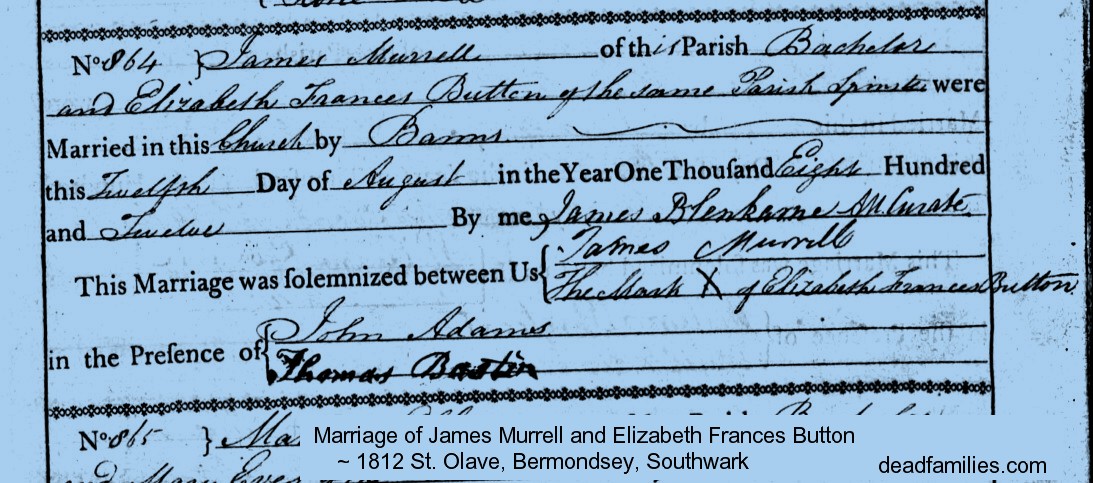 No 864 } James Murrell of this Parish Bachelor
and Elizabeth Frances Button of the same Parish Spinster were
Married in this Church by Banns
this Twelfth Day of August in the Year One Thouſand Eight Hundred
and Twelve By me James Blenkarne Curate
This Marriage was ſolemnized between Us { James Murrell
The Mark X of Elizabeth Frances Button
in the Preſence of { John Adams
Thomas Bastin
No 865 } Ma
and Mary
Marriage of James Murrell and Elizabeth Frances Button
~ 1812 St. Olave, Bermondsey, Southwark
deadfamilies.com